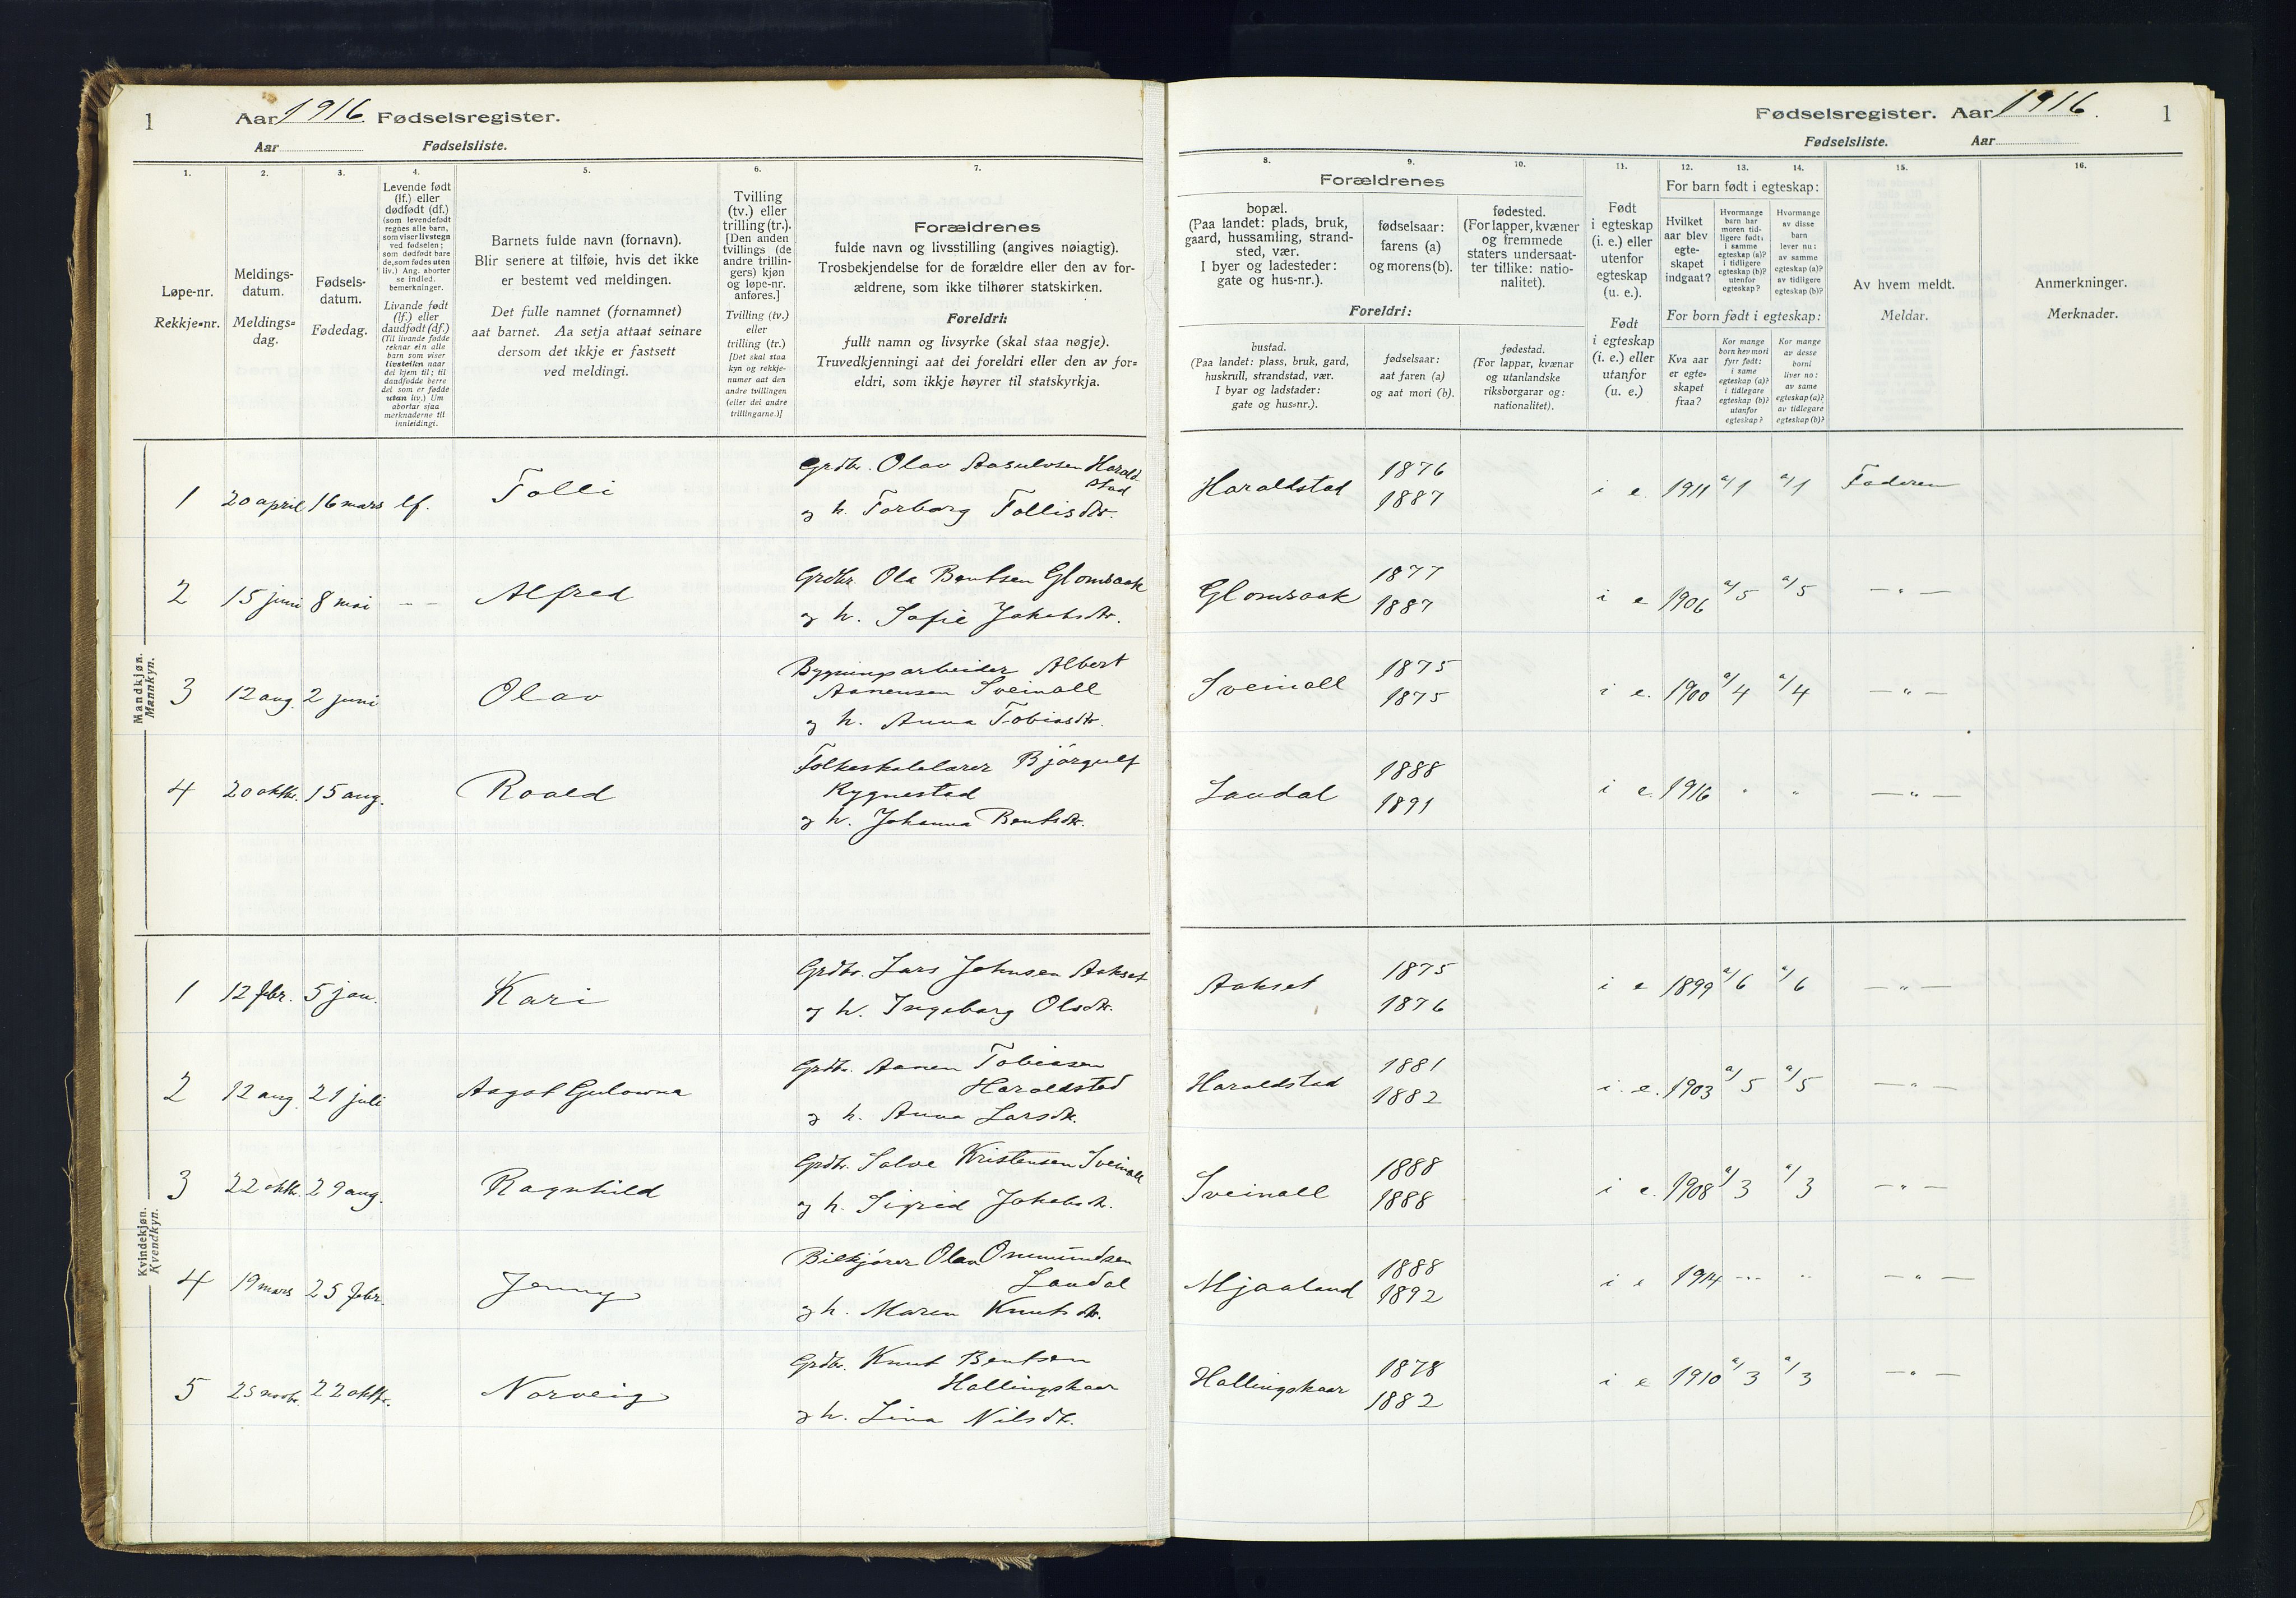 1 Aar 1916. Fødselsregister.
Aar Fødselsliste.
1. 2. 3. 4. 5. 6. 7.
Løpe-nr.
Rekkje-nr.
Meldings-
datum.
Meldings-
dag.
Fødsels-
datum.
Fødedag.
Levende født
(lf.) eller
dødfødt (df.)
(som levendefødt
regnes alle barn,
som viser livstegn
ved fødselen;
som dødfødt bare
de, som fødes uten
liv.) Ang. aborter
se indled.
bemerkninger.
Livande født
(lf.) eller
daudfødt (df.)
(Til livande fødde
reknar ein alle
barn som viser
livsteikn naar
dei kjem til; til
daudfødde berre
dei som er fødde
utan liv.) Um
abortar sjaa
merknaderne til
innleidingi.
Barnets fulde navn (fornavn).
Blir senere at tilføie, hvis det ikke
er bestemt ved meldingen.
Det fulle namnet (fornamnet)
aat barnet. Aa setja attaat seinare
dersom det ikkje er fastsett
ved meldingi.
Tvilling
(tv.) eller
trilling (tr.).
[Den anden
tvillings (de
andre trillin-
gers) kjøn
og løpe-nr.
anføres.]
Tvilling (tv.)
eller
trilling (tr.)
[Det skal staa
kyn og rekkje-
numer aat den
andre tvillingen
(eller dei andre
trillingarne.)]
Forældrenes
fulde navn og livsstilling (angives nøiagtig).
Trosbekjendelse for de forældre eller den av for-
ældrene, som ikke tilhører statskirken.
Foreldri:
fullt namn og livsyrke (skal staa nøgje).
Truvedkjenningi aat dei foreldri eller den av for-
eldri, som ikkje høyrer til statskyrkja.
Mandkjøn.
Mannkyn.
1 20 april 16 mars lf. Tolli Grdbr. Olav Aasulvsen Harald-
stad
og h. Torborg Tollisdtr.
2 15 juni 8 mai — — Alfred Grdbr. Ola Bentsen Glomsaak
og h. Sofie Jakobsdtr.
3 12 aug. 2 juni Olav Bygningsarbeider Albert
Aanensen Sveinall
og h. Anna Tobiasdtr.
4 20 oktbr. 15 aug. Roald Folkeskolelærer Bjørgulf
Rygnestad
og h. Johanna Bentsdtr.
Kvindekjøn.
Kvendkyn.
1 12 febr. 5 jan. Kari Grdbr. Lars Johnsen Aakset
og h. Ingeborg Olsdtr.
2 12 aug. 21 juli Aagot Gulowna Grdbr. Aanen Tobiasen
Haraldstad
og h. Anna Larsdtr.
3 22 oktbr. 29 aug. Ragnhild Grdbr. Salve Kristensen Sveinall
og h. Sigrid Jakobsdtr.
4 19 mars 25 febr. Jenny Bilkjører Olav Ommundsen
Laudal
og h. Maren Knutsdtr.
5 25 novbr. 22 oktbr. Norveig Grdbr. Knut Bentsen
Hallingskaar
og h. Lina Nilsdtr.
Fødselsregister. Aar 1916. 1
Fødselsliste. Aar
8. 9. 10. 11. 12. 13. 14. 15. 16.
Forældrenes
bopæl.
(Paa landet: plads, bruk,
gaard, hussamling, strand-
sted, vær.
I byer og ladesteder:
gate og hus-nr.).
fødselsaar:
farens (a)
og morens (b).
fødested.
(For lapper, kvæner
og fremmede
staters undersaat-
ter tillike: natio-
nalitet).
Foreldri:
bustad.
(Paa landet: plass, bruk, gard,
huskrull, strandstad, vær.
I byar og ladstader:
gate og hus-nr.).
fødselsaar:
aat faren (a)
og aat mori (b).
fødestad.
(For lappar, kvænar
og utanlandske
riksborgarar og:
nationalitet).
Født
i egteskap
(i. e.) eller
utenfor
egteskap
(u. e.).
Født
i egteskap
(i. e.) eller
utanfor
(u. e.)
For barn født i egteskap:
Hvilket
aar blev
egte-
skapet
indgaat?
Hvormange
barn har
moren tid-
ligere født:
i samme
egteskap (a)?
i tidligere
egteskap (b)?
utenfor
egteskap?
Hvormange
av disse
barn
lever nu:
av samme
egteskap (a)?
av tidligere
egteskap (b)?
For born født i egteskap:
Kva aar
er egte-
skapet
fraa?
Kor mange
born hev mori
fyrr født:
i same
egteskap (a)?
i tidlegare
egteskap (b)?
utanfor
egteskap?
Kor mange
av desse
borni
liver no:
av same
egteskap (a)?
av tidlegare
egteskap (b)?
Av hvem meldt.
Meldar.
Anmerkninger.
Merknader.
Haraldstad 1876
1887 i e. 1911 a/1 a/1 Faderen
Glomsaak 1877
1887 i e 1906 a/5 a/5 — " —
Sveinall 1875
1875 i e. 1900 a/4 a/4 — " —
Laudal 1888
1891 i e. 1916 " " — " —
Aakset 1875
1876 i e 1899 a/6 a/6 — " —
Haraldstad 1881
1882 i. e. 1903 a/5 a/5 — " —
Sveinall 1888
1888 i e. 1908 a/3 a/3 — " —
Mjaaland 1888
1892 i e 1914 - " - " — " —
Hallingskaar 1878
1882 i e 1910 a/3 a/3 — " —